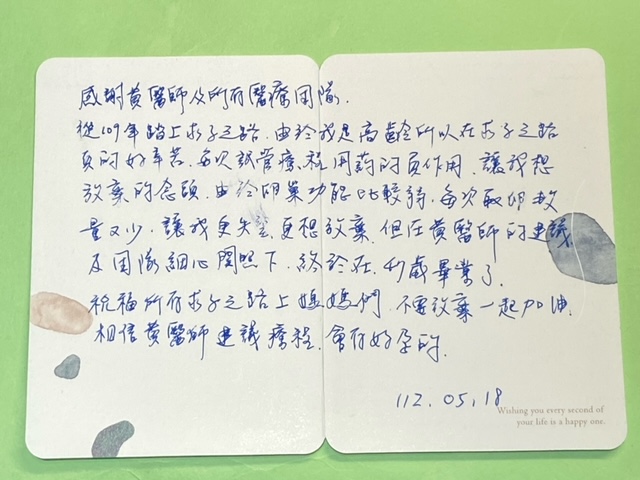 感謝黃醫師及所有醫療團隊.
從109年踏上求子之路.由於我是高齡所以在求子之路
真的好辛苦.每次試管療程用药的負作用.讓我想
放棄的念頭.由於卵巢功能比較弱.每次取卵數
量又少.讓我更失.更想放棄.但在黃醫師的建議
及团隊細心関照下.終於在.41歲畢業了.
祝福所有求子之路上媽媽們.不要放棄一起加油.
相信黃醫師建議療程.會有好孕的.
112.05.18
Wishing you every second of
your life is a happy one.